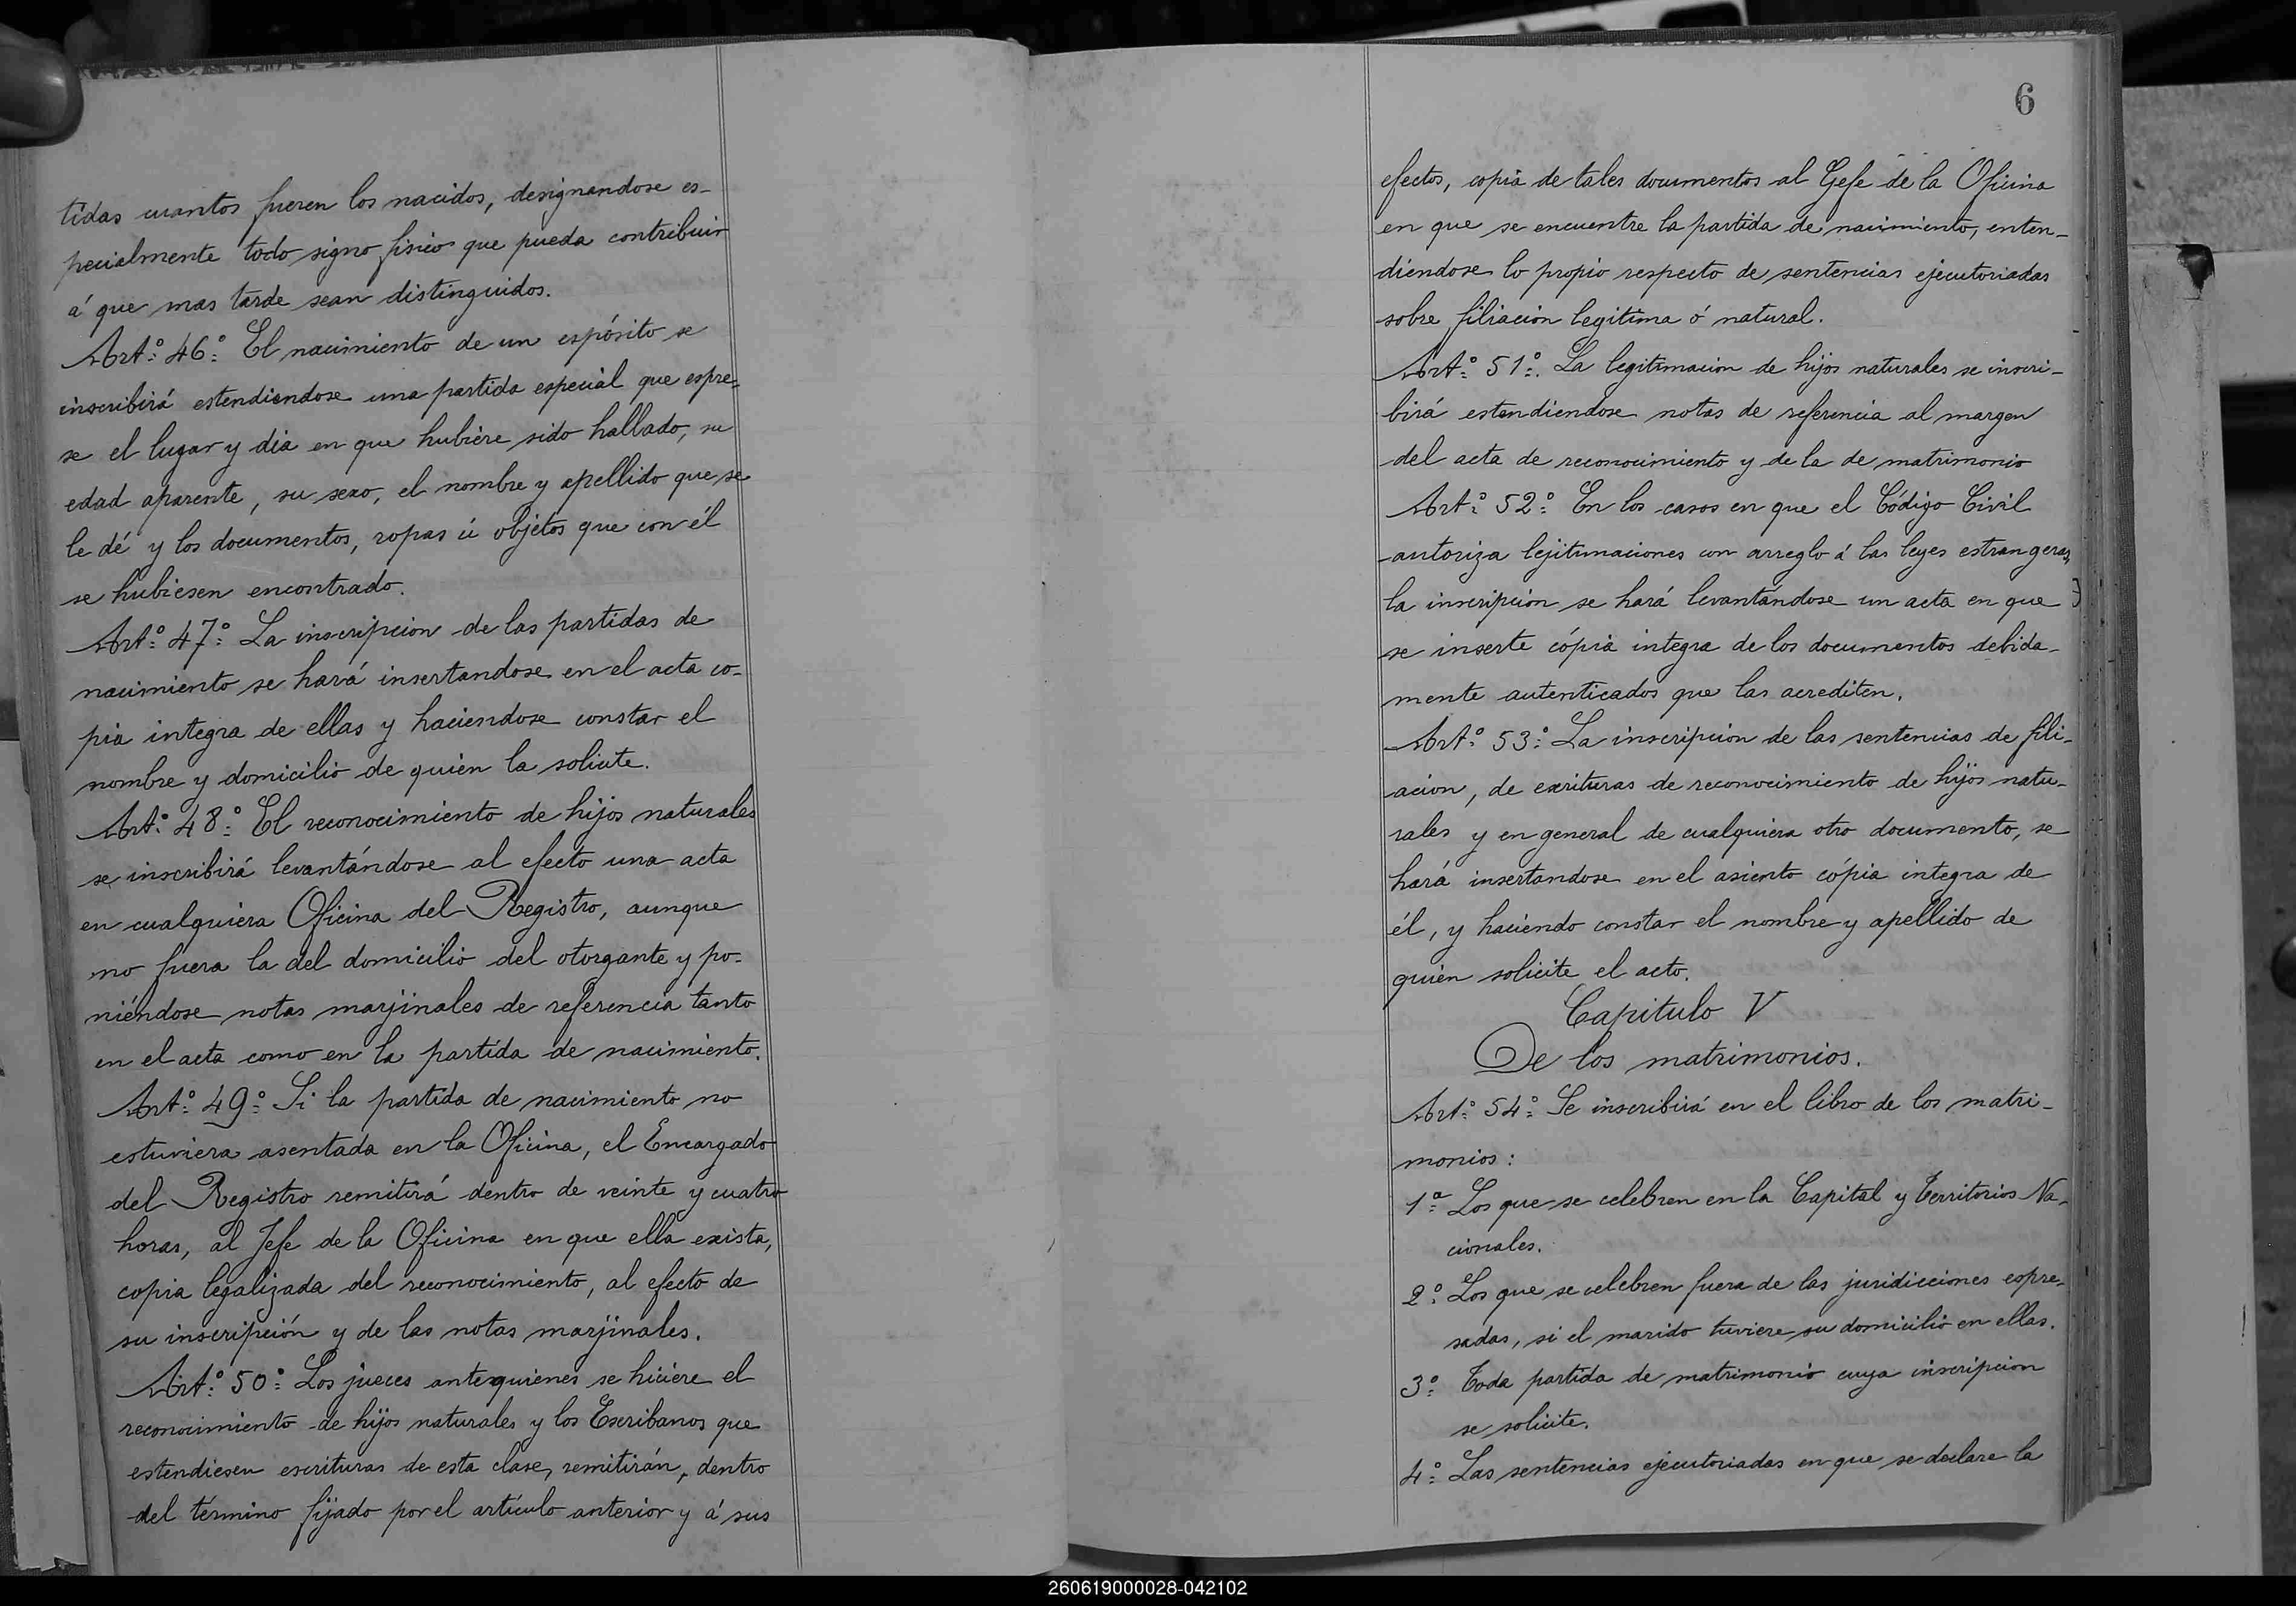 tidas cuantos fueren los nacidos, designandose es-
pecialmente todo signo fisico que pueda contribuir
á que mas tarde sean distinguidos.
Art.º 46.º El nacimiento de un espósito se
inscribirá estendiendose una partida especial que espre-
se el lugar y dia en que hubiere sido hallado, su
edad aparente, su sexo, el nombre y apellido que se
le dé y los documentos, ropas ú objetos que con él
se hubiesen encontrado.
Art.º 47.º La inscripcion de las partidas de
nacimiento se hará insertandose en el acta co-
pia integra de ellas y haciendose constar el
nombre y domicilio de quien la solicite.
Art.º 48.º El reconocimiento de hijos naturales
se inscribirá levantándose al efecto una acta
en cualquiera Oficina del Registro, aunque
no fuera la del domicilio del otorgante y po-
niéndose notas marjinales de referencia tanto
en el acta como en la partida de nacimiento.
Art.º 49.º Si la partida de nacimiento no
estuviera asentada en la Oficina, el Encargado
del Registro remitirá dentro de veinte y cuatro
horas, al Jefe de la Oficina en que ella exista,
copia legalizada del reconocimiento, al efecto de
su inscripción y de las notas marjinales.
Art.º 50.º Los jueces ante quienes se hiciere el
reconocimiento de hijos naturales y los Escribanos que
estendiesen escrituras de esta clase, remitirán, dentro
del término fijado por el artículo anterior y á sus
6
efectos, copia de tales documentos al Gefe de la Oficina
en que se encuentre la partida de nacimiento, enten-
diendose lo propio respecto de sentencias ejecutoriadas
sobre filiacion legitima ó natural.
Art.º 51.º La legitimacion de hijos naturales se inscri-
birá estendiendose notas de referencia al margen
del acta de reconocimiento y de la de matrimonio
Art.º 52.º En los casos en que el Código Civil
autoriza lejitimaciones con arreglo á las leyes estrangeras,
la inscripcion se hará levantandose un acta en que
se inserte cópia integra de los documentos debida-
mente autenticados que las acrediten.
Art.º 53.º La inscripcion de las sentencias de fili-
acion, de escrituras de reconocimiento de hijos natu-
rales y en general de cualquiera otro documento, se
hará insertandose en el asiento cópia integra de
él, y haciendo constar el nombre y apellido de
quien solicite el acto.
Capitulo V
De los matrimonios.
Art.º 54.º Se inscribirá en el libro de los matri-
monios:
1.ª Los que se celebren en la Capital y Territorios Na-
cionales.
2.º Los que se celebren fuera de las juridicciones espre-
sadas, si el marido tuviere su domicilio en ellas.
3.º Toda partida de matrimonio cuya inscripcion
se solicite.
4.º Las sentencias ejecutoriadas en que se declare la
260619000028-042102